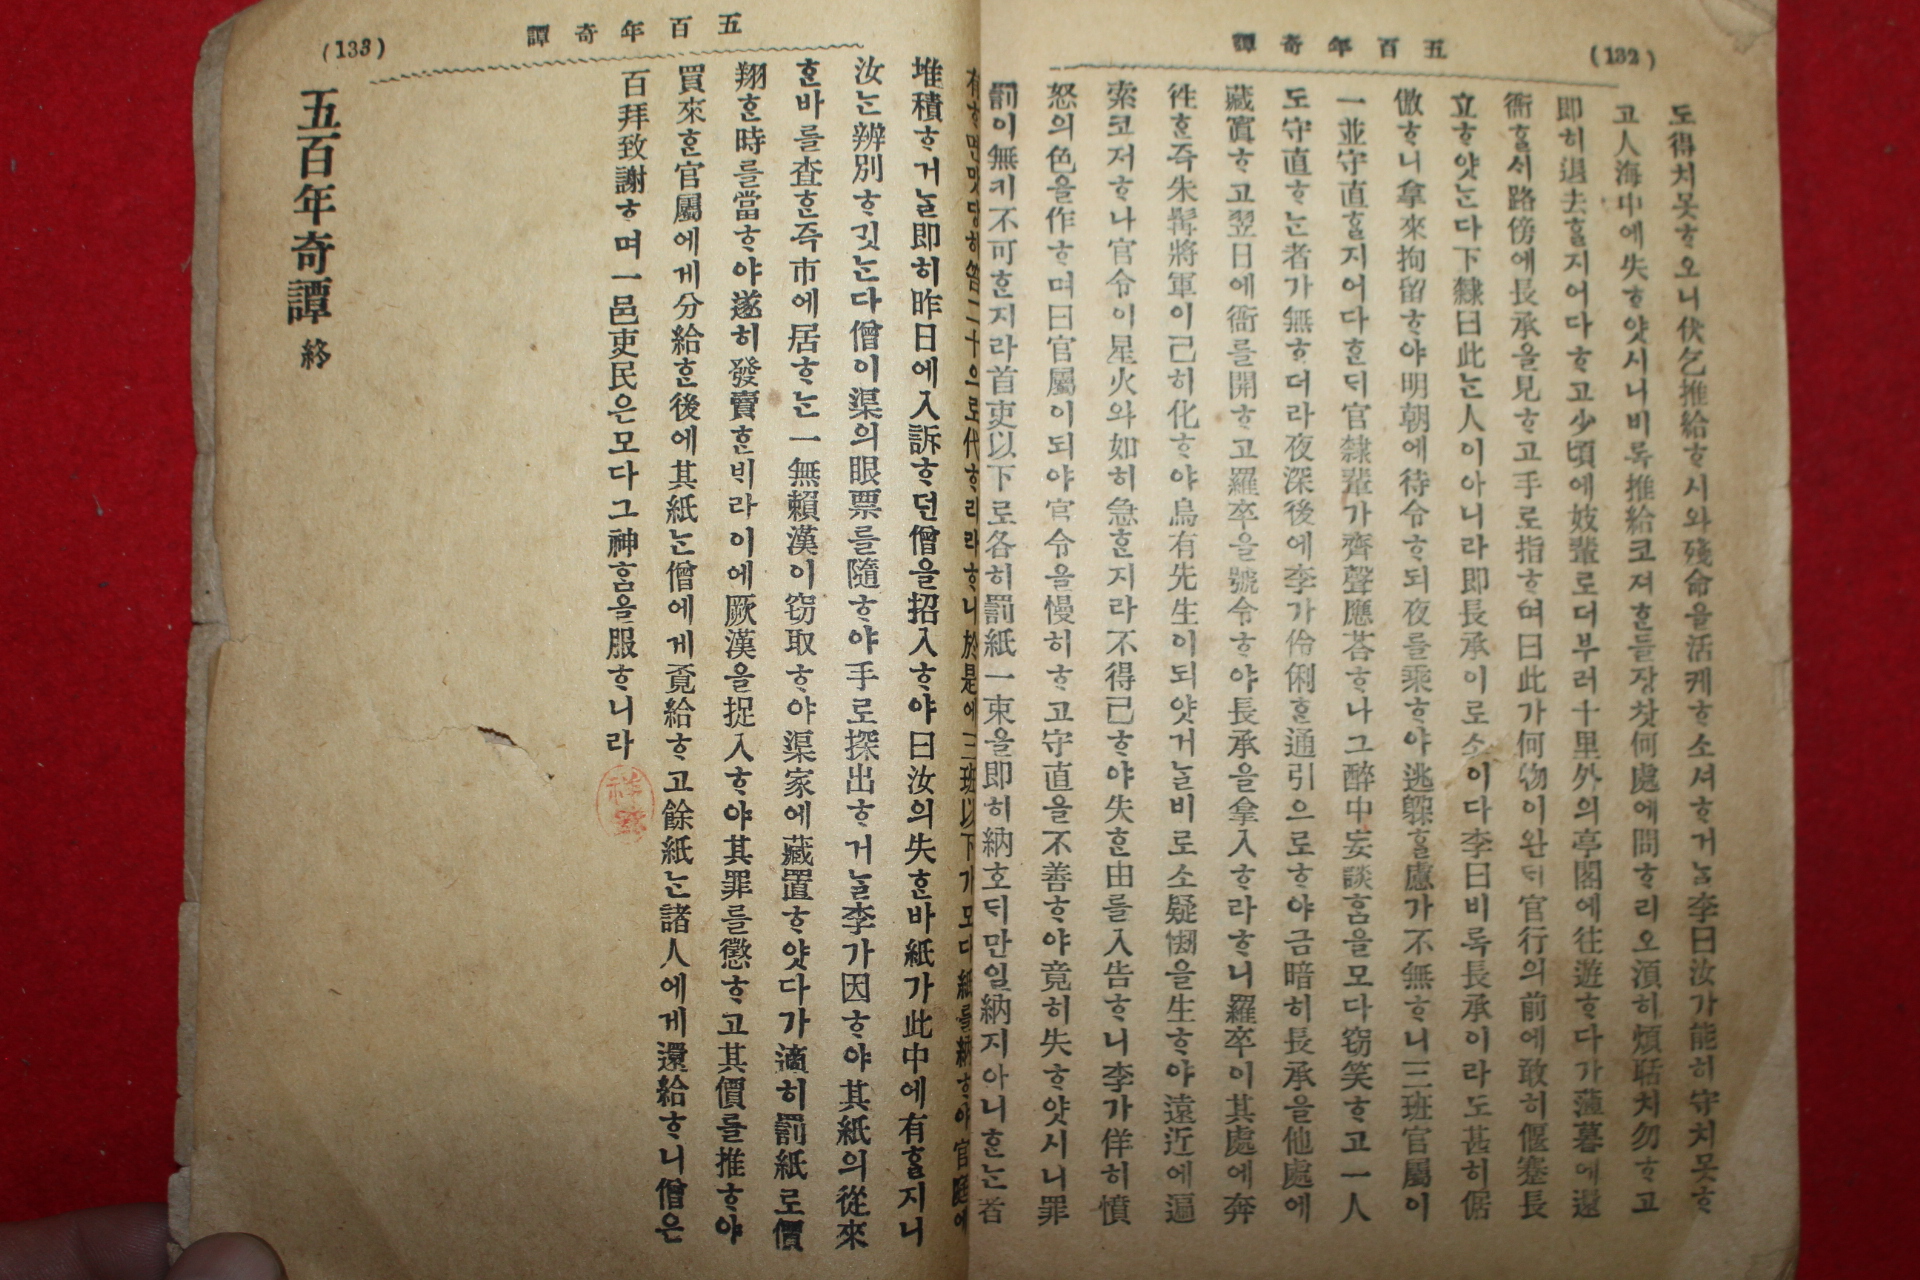 (132)
五百年奇譚
도得치못ᄒᆞ오니伏乞推給ᄒᆞ시와殘命을活케ᄒᆞ소셔ᄒᆞ거ᄂᆞᆯ李曰汝가能히守치못ᄒᆞ
고人海中에失ᄒᆞ얏시니비록推給코져ᄒᆞᆫ들장찻何處에問ᄒᆞ리오須히煩聒치勿ᄒᆞ고
即히退去ᄒᆞᆯ지어다ᄒᆞ고少頃에妓輩로더부러十里外의亭閣에往遊ᄒᆞ다가薄暮에還
衙ᄒᆞᆯᄉᆡ路傍에長承을見ᄒᆞ고手로指ᄒᆞ며曰此가何物이완ᄃᆡ官行의前에敢히偃蹇長
立ᄒᆞ얏ᄂᆞᆫ다下隸曰此ᄂᆞᆫ人이아니라即長承이로소이다李曰비록長承이라도甚히倨
傲ᄒᆞ니拿來拘留ᄒᆞ야明朝에待令ᄒᆞ되夜를乘ᄒᆞ야逃躱ᄒᆞᆯ慮가不無ᄒᆞ니三班官屬이
一並守直ᄒᆞᆯ지어다ᄒᆞᆫᄃᆡ官隸輩가齊聲應答ᄒᆞ나그醉中妄談ᄒᆞᆷ을모다竊笑ᄒᆞ고一人
도守直ᄒᆞᄂᆞᆫ者가無ᄒᆞ더라夜深後에李가伶俐ᄒᆞᆫ通引으로ᄒᆞ야금暗히長承을他處에
藏寘ᄒᆞ고翌日에衙를開ᄒᆞ고羅卒을號令ᄒᆞ야長承을拿入ᄒᆞ라ᄒᆞ니羅卒이其處에奔
徃ᄒᆞᆫ즉朱髥將軍이已히化ᄒᆞ야烏有先生이되얏거ᄂᆞᆯ비로소疑懼을生ᄒᆞ야遠近에遍
索코저ᄒᆞ나官令이星火와如히急ᄒᆞᆫ지라不得已ᄒᆞ야失ᄒᆞᆫ由를入告ᄒᆞ니李가佯히憤
怒의色을作ᄒᆞ며曰官屬이되야官令을慢히ᄒᆞ고守直을不善ᄒᆞ야竟히失ᄒᆞ얏시니罪
罰이無키不可ᄒᆞᆫ지라首吏以下로各히罰紙一束을即히納호ᄃᆡ만일納지아니ᄒᆞᄂᆞᆫ者
(133)
五百年奇譚
有ᄒᆞ면맛당히笞二十으로代ᄒᆞ리라ᄒᆞ니於是에三班以下가모다紙를納ᄒᆞ야官庭에
堆積ᄒᆞ거ᄂᆞᆯ即히昨日에入訴ᄒᆞ던僧을招入ᄒᆞ야曰汝의失ᄒᆞᆫ바紙가此中에有ᄒᆞᆯ지니
汝ᄂᆞᆫ辨別ᄒᆞ깃ᄂᆞᆫ다僧이渠의眼票를隨ᄒᆞ야手로探出ᄒᆞ거ᄂᆞᆯ李가因ᄒᆞ야其紙의從來
ᄒᆞᆫ바를査ᄒᆞᆫ즉市에居ᄒᆞᄂᆞᆫ一無賴漢이窃取ᄒᆞ야渠家에藏置ᄒᆞ얏다가適히罰紙로價
翔ᄒᆞᆫ時를當ᄒᆞ야遂히發賣ᄒᆞᆫᄇᆡ라이에厥漢을捉入ᄒᆞ야其罪를懲ᄒᆞ고其價를推ᄒᆞ야
買來ᄒᆞᆫ官屬에게分給ᄒᆞᆫ後에其紙ᄂᆞᆫ僧에게覔給ᄒᆞ고餘紙ᄂᆞᆫ諸人에게還給ᄒᆞ니僧은
百拜致謝ᄒᆞ며一邑吏民은모다그神ᄒᆞᆷ을服ᄒᆞ니라
五百年奇譚 終